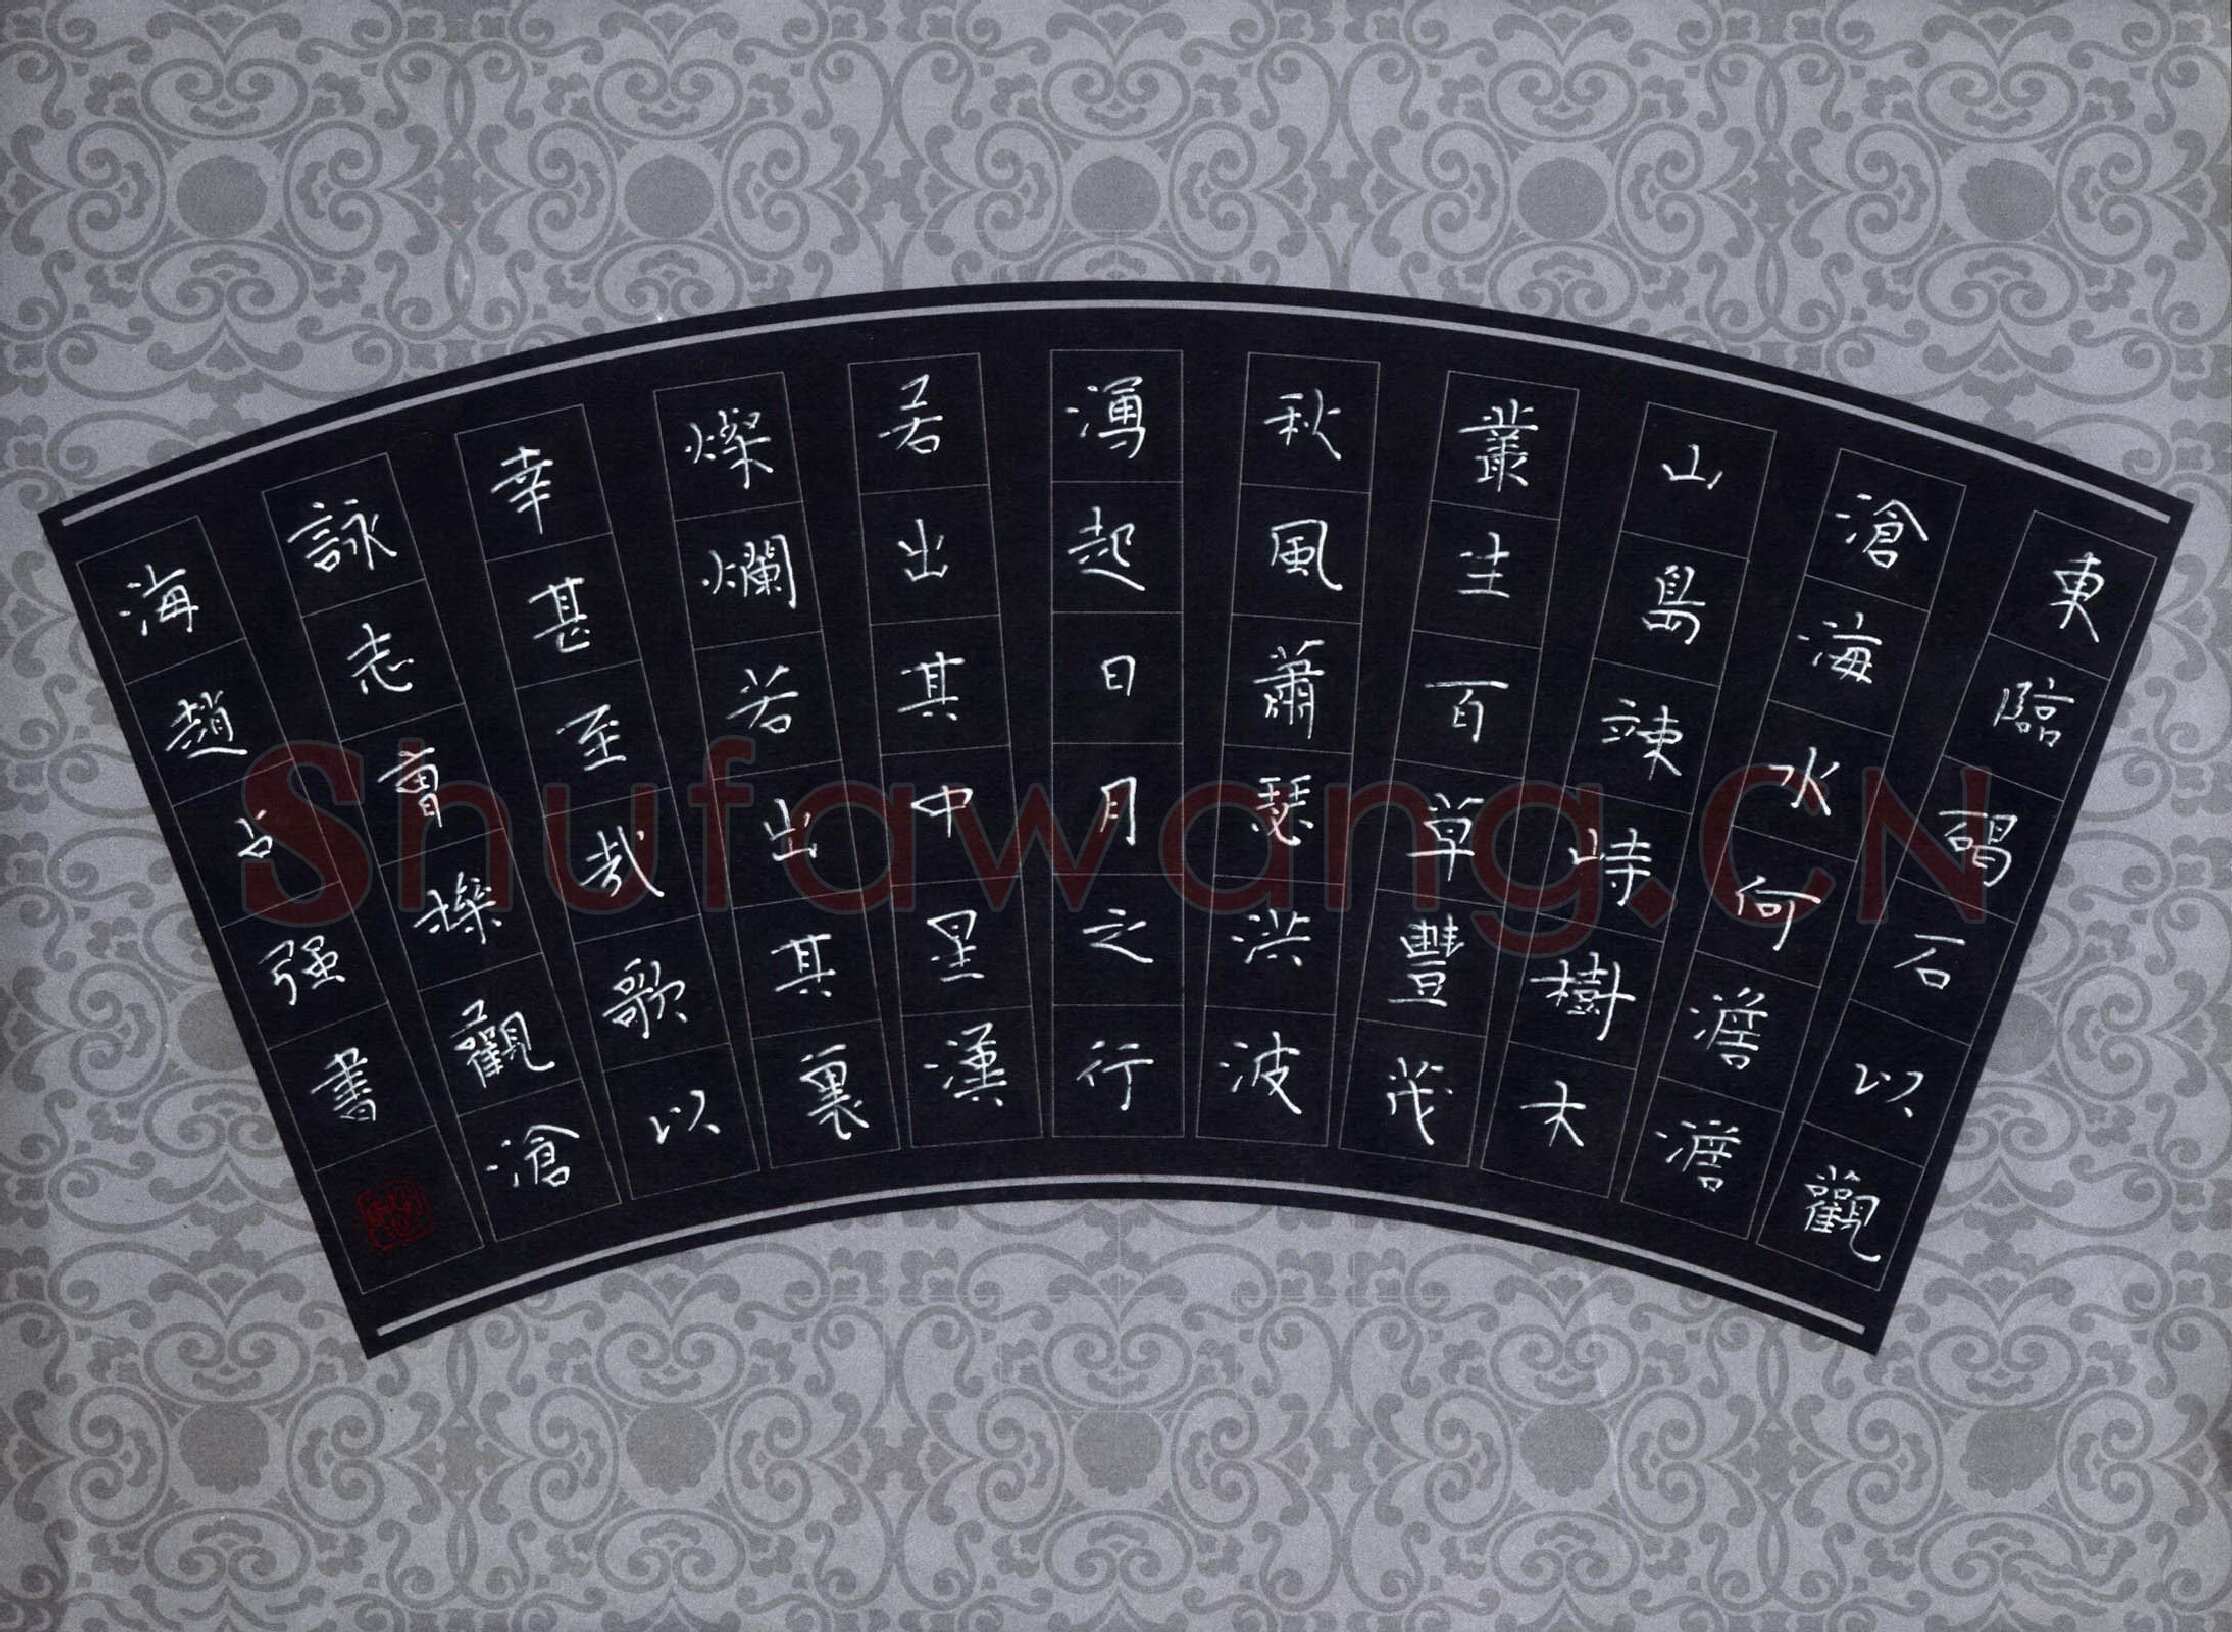 東臨碣石以觀
滄海水何澹澹
山島竦峙樹木
叢生百草豐茂
秋風蕭瑟洪波
湧起日月之行
若出其中星漢
燦爛若出其裏
幸甚至哉歌以
詠志曹操觀滄
海趙占强書
Shufawang.CN